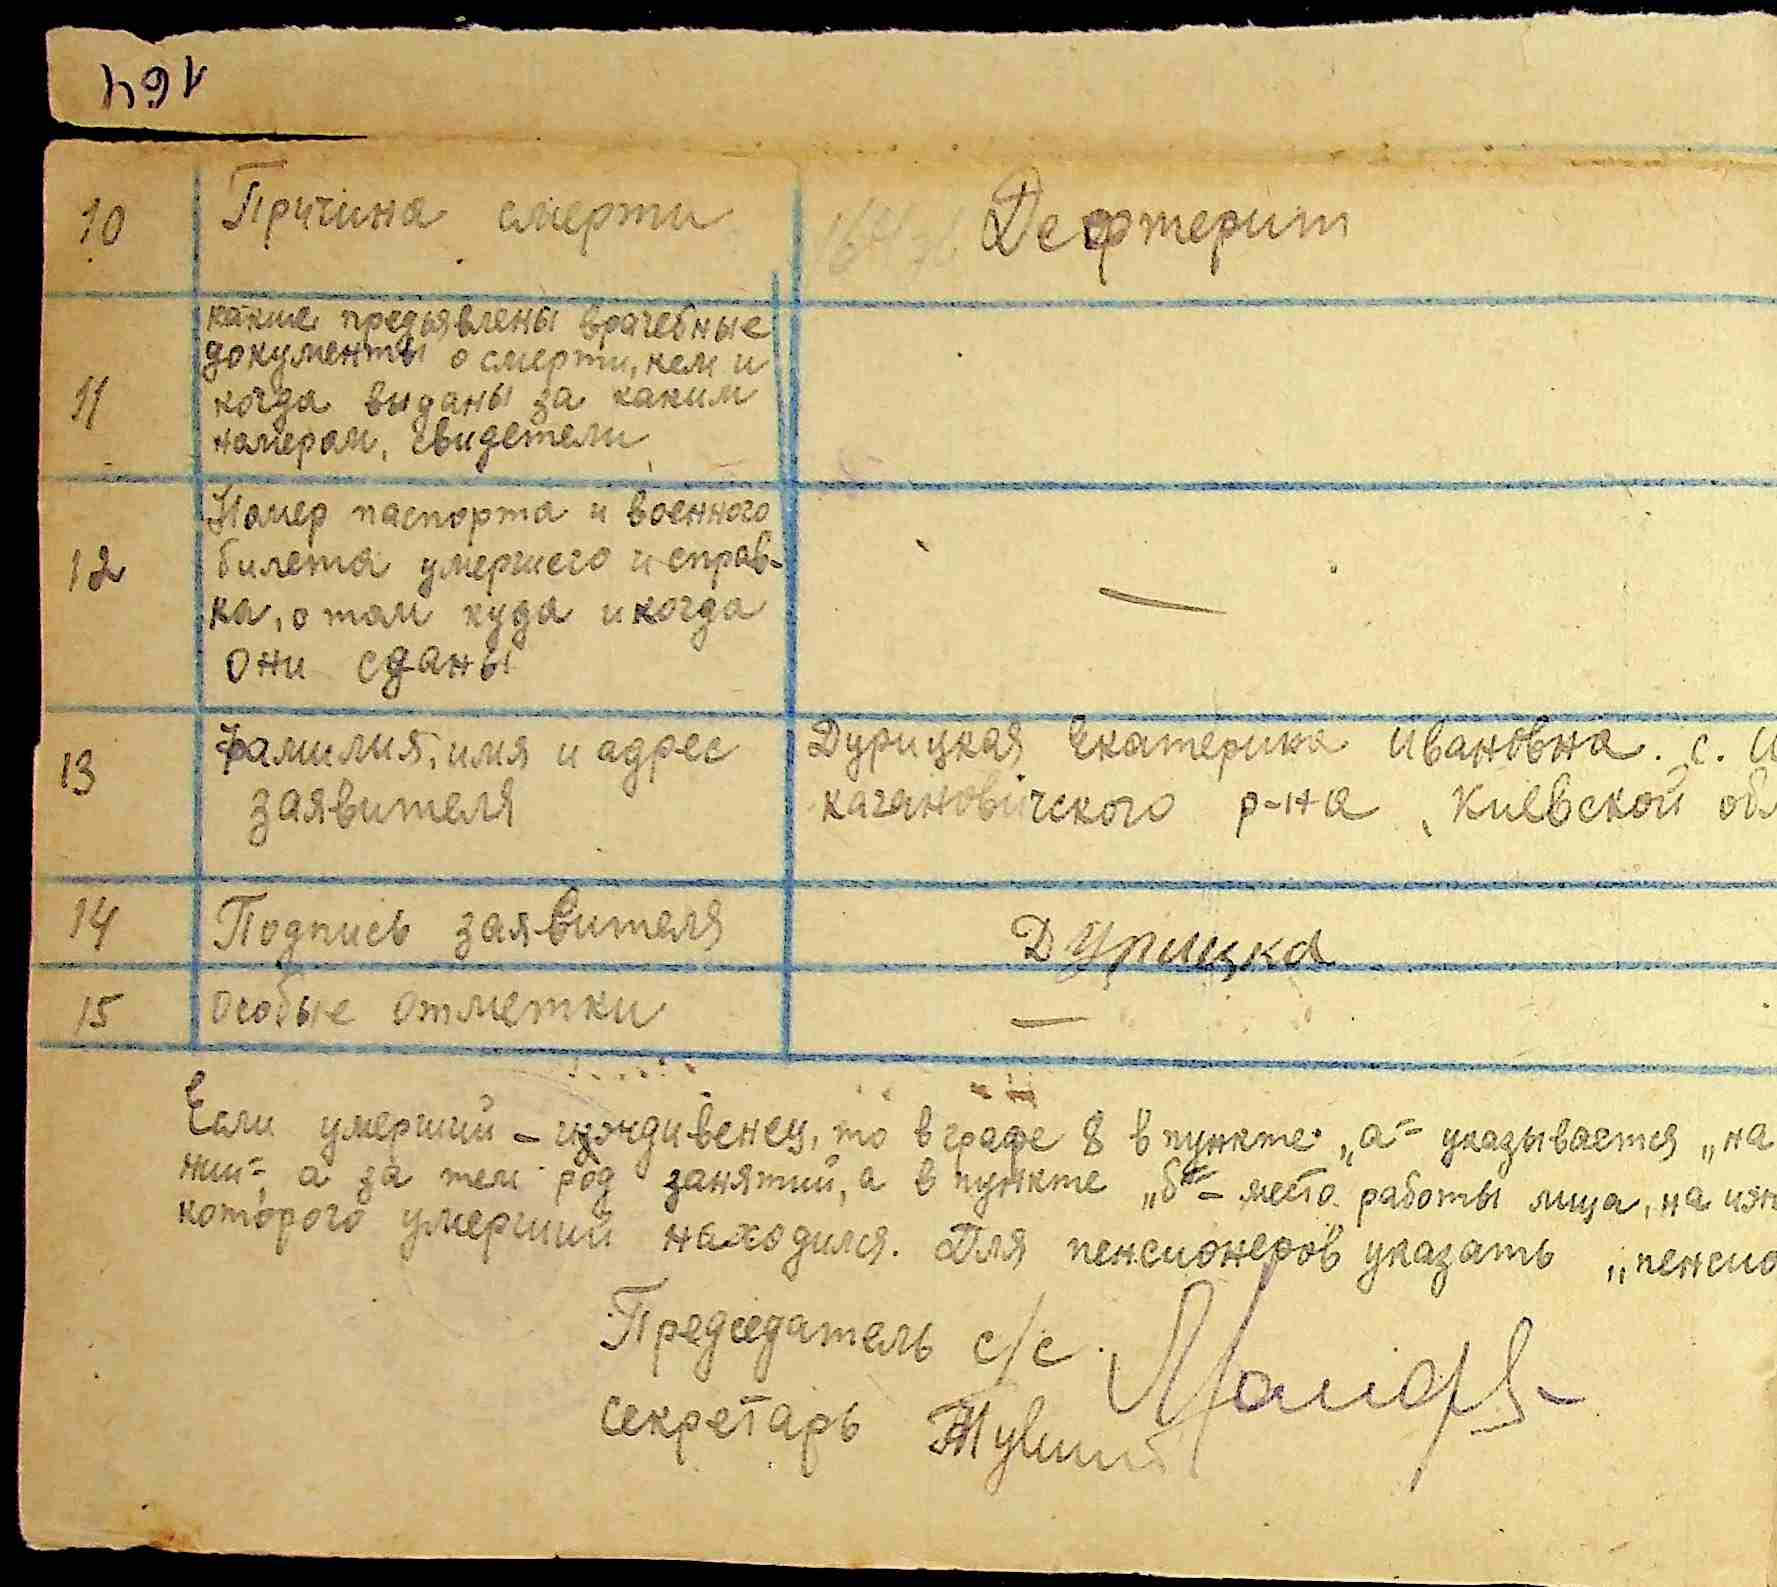 164
10 Причина смерти Дефтерит
какие предъявлены врачебные
документы о смерти, кем и
11 когда выданы за каким
номером, свидетели
Номер паспорта и военного
12 билета умершего и справ-
ка, о том куда и когда —
они сданы
13 фамилия, имя и адрес Дурицкая Екатерина Ивановна. с. И
заявителя кагановичского р-на, Киевской обл
14 Подпись заявителя Дурицка
15 Особые отметки —
Если умерший – иждивенец, то в графе 8 в пункте „а" указывается „на
нии", а за тем род занятий, а в пункте „б" – место работы лица, на иж
которого умерший находился. Для пенсионеров указать „пенсио
Председатель с/с.
секретарь